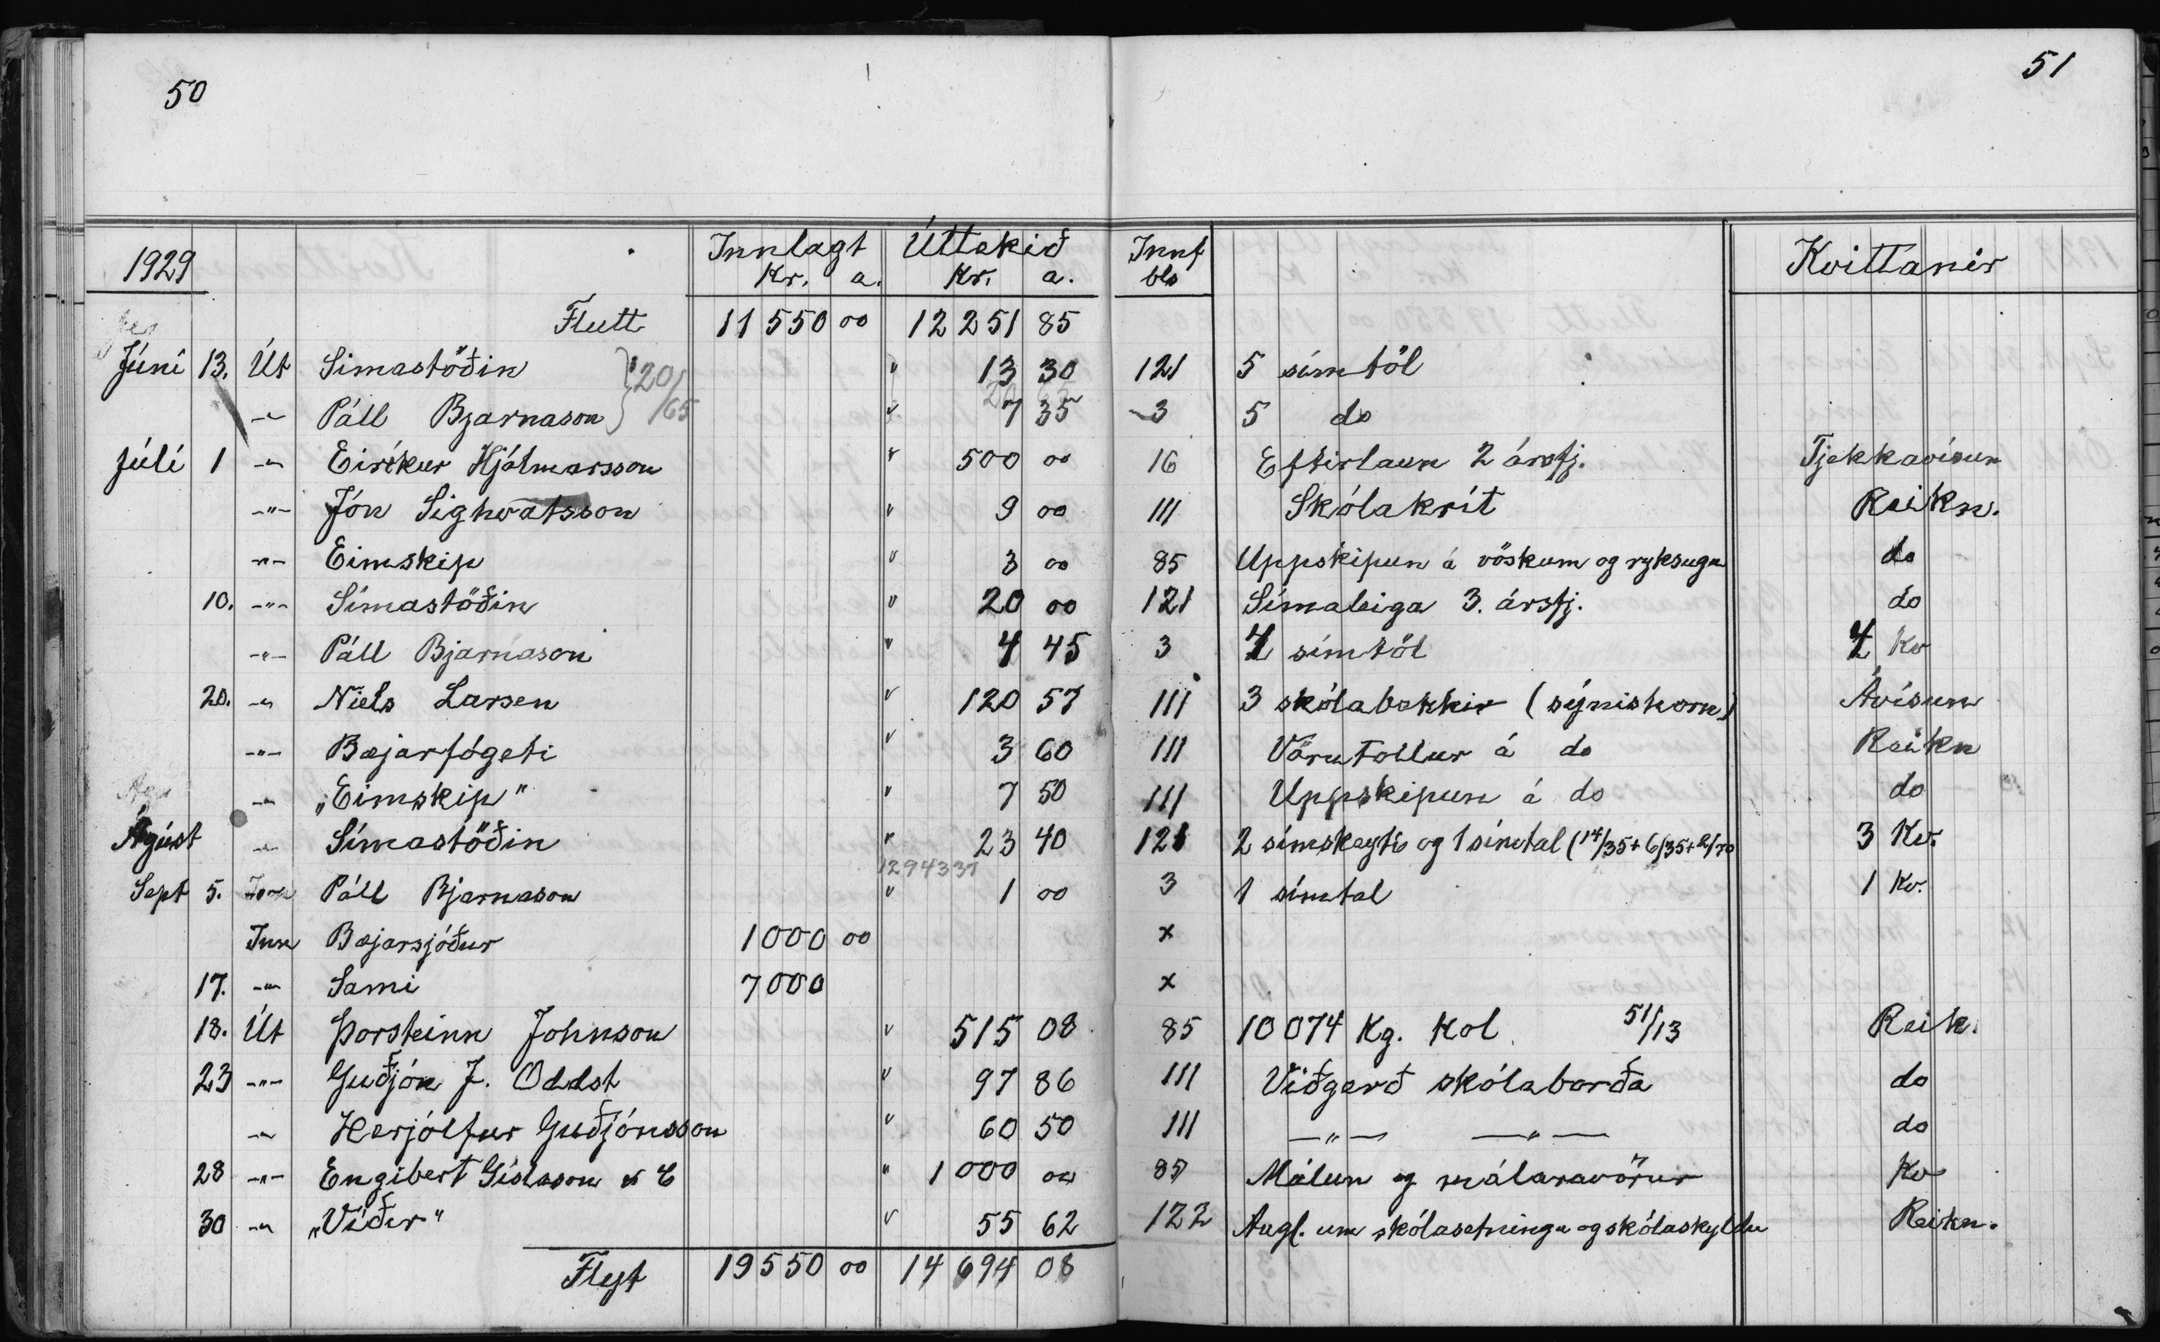 50
51
1929 Innlagt Úttekið Innf Kvittanir
Kr. a. Kr. a. bls
Flutt 11550 00 12251 85
Júní 13. Út Símastöðin 20/65 " 13 30 121 5 símtöl
-"- Páll Bjarnason " 7 35 3 5 do
Júlí 1 -"- Eiríkur Hjálmarsson " 500 00 16 Eftirlaun 2 ársfj. Tjekkavísun
-"- Jón Sighvatsson " 9 00 111 Skólakrít Reikn.
-"- Eimskip " 3 00 85 Uppskipun á vöskum og ryksugu do
10. -"- Símastöðin " 20 00 121 Símaleiga 3. ársfj. do
-"- Páll Bjarnason " 4 45 3 4 símtöl 4 Kv
20. -"- Niels Larsen " 120 57 111 3 skólabekkir (sýnishorn) Ávísun
-"- Bæjarfógeti " 3 60 111 Vörutollur á do Reikn
-"- „Eimskip" " 7 50 111 Uppskipun á do do
Ágúst -"- Símastöðin " 23 40 121 2 símskeyti og 1 símtal (14/35+6/35+2/70 3 Kv.
1294337
Sept 5. Páll Bjarnason " 1 00 3 1 símtal 1 Kv.
Inn Bæjarsjóður 1000 00 x
17. -"- Sami 7000 x
18. Út Þorsteinn Johnson " 515 08 85 10074 Kg. Kol 51/13 Reik.
23 -"- Guðjón J. Oddst " 97 86 111 Viðgerð skólaborða do
-"- Herjólfur Guðjónsson " 60 50 111 -"- -"- do
28 -"- Engilbert Gíslason " 1000 00 85 Málun og málaravörur Kv
30 -"- „Víðir" " 55 62 122 Augl. um skólasetningu og skólaskyldu Reikn.
Flyt 19550 00 14694 08